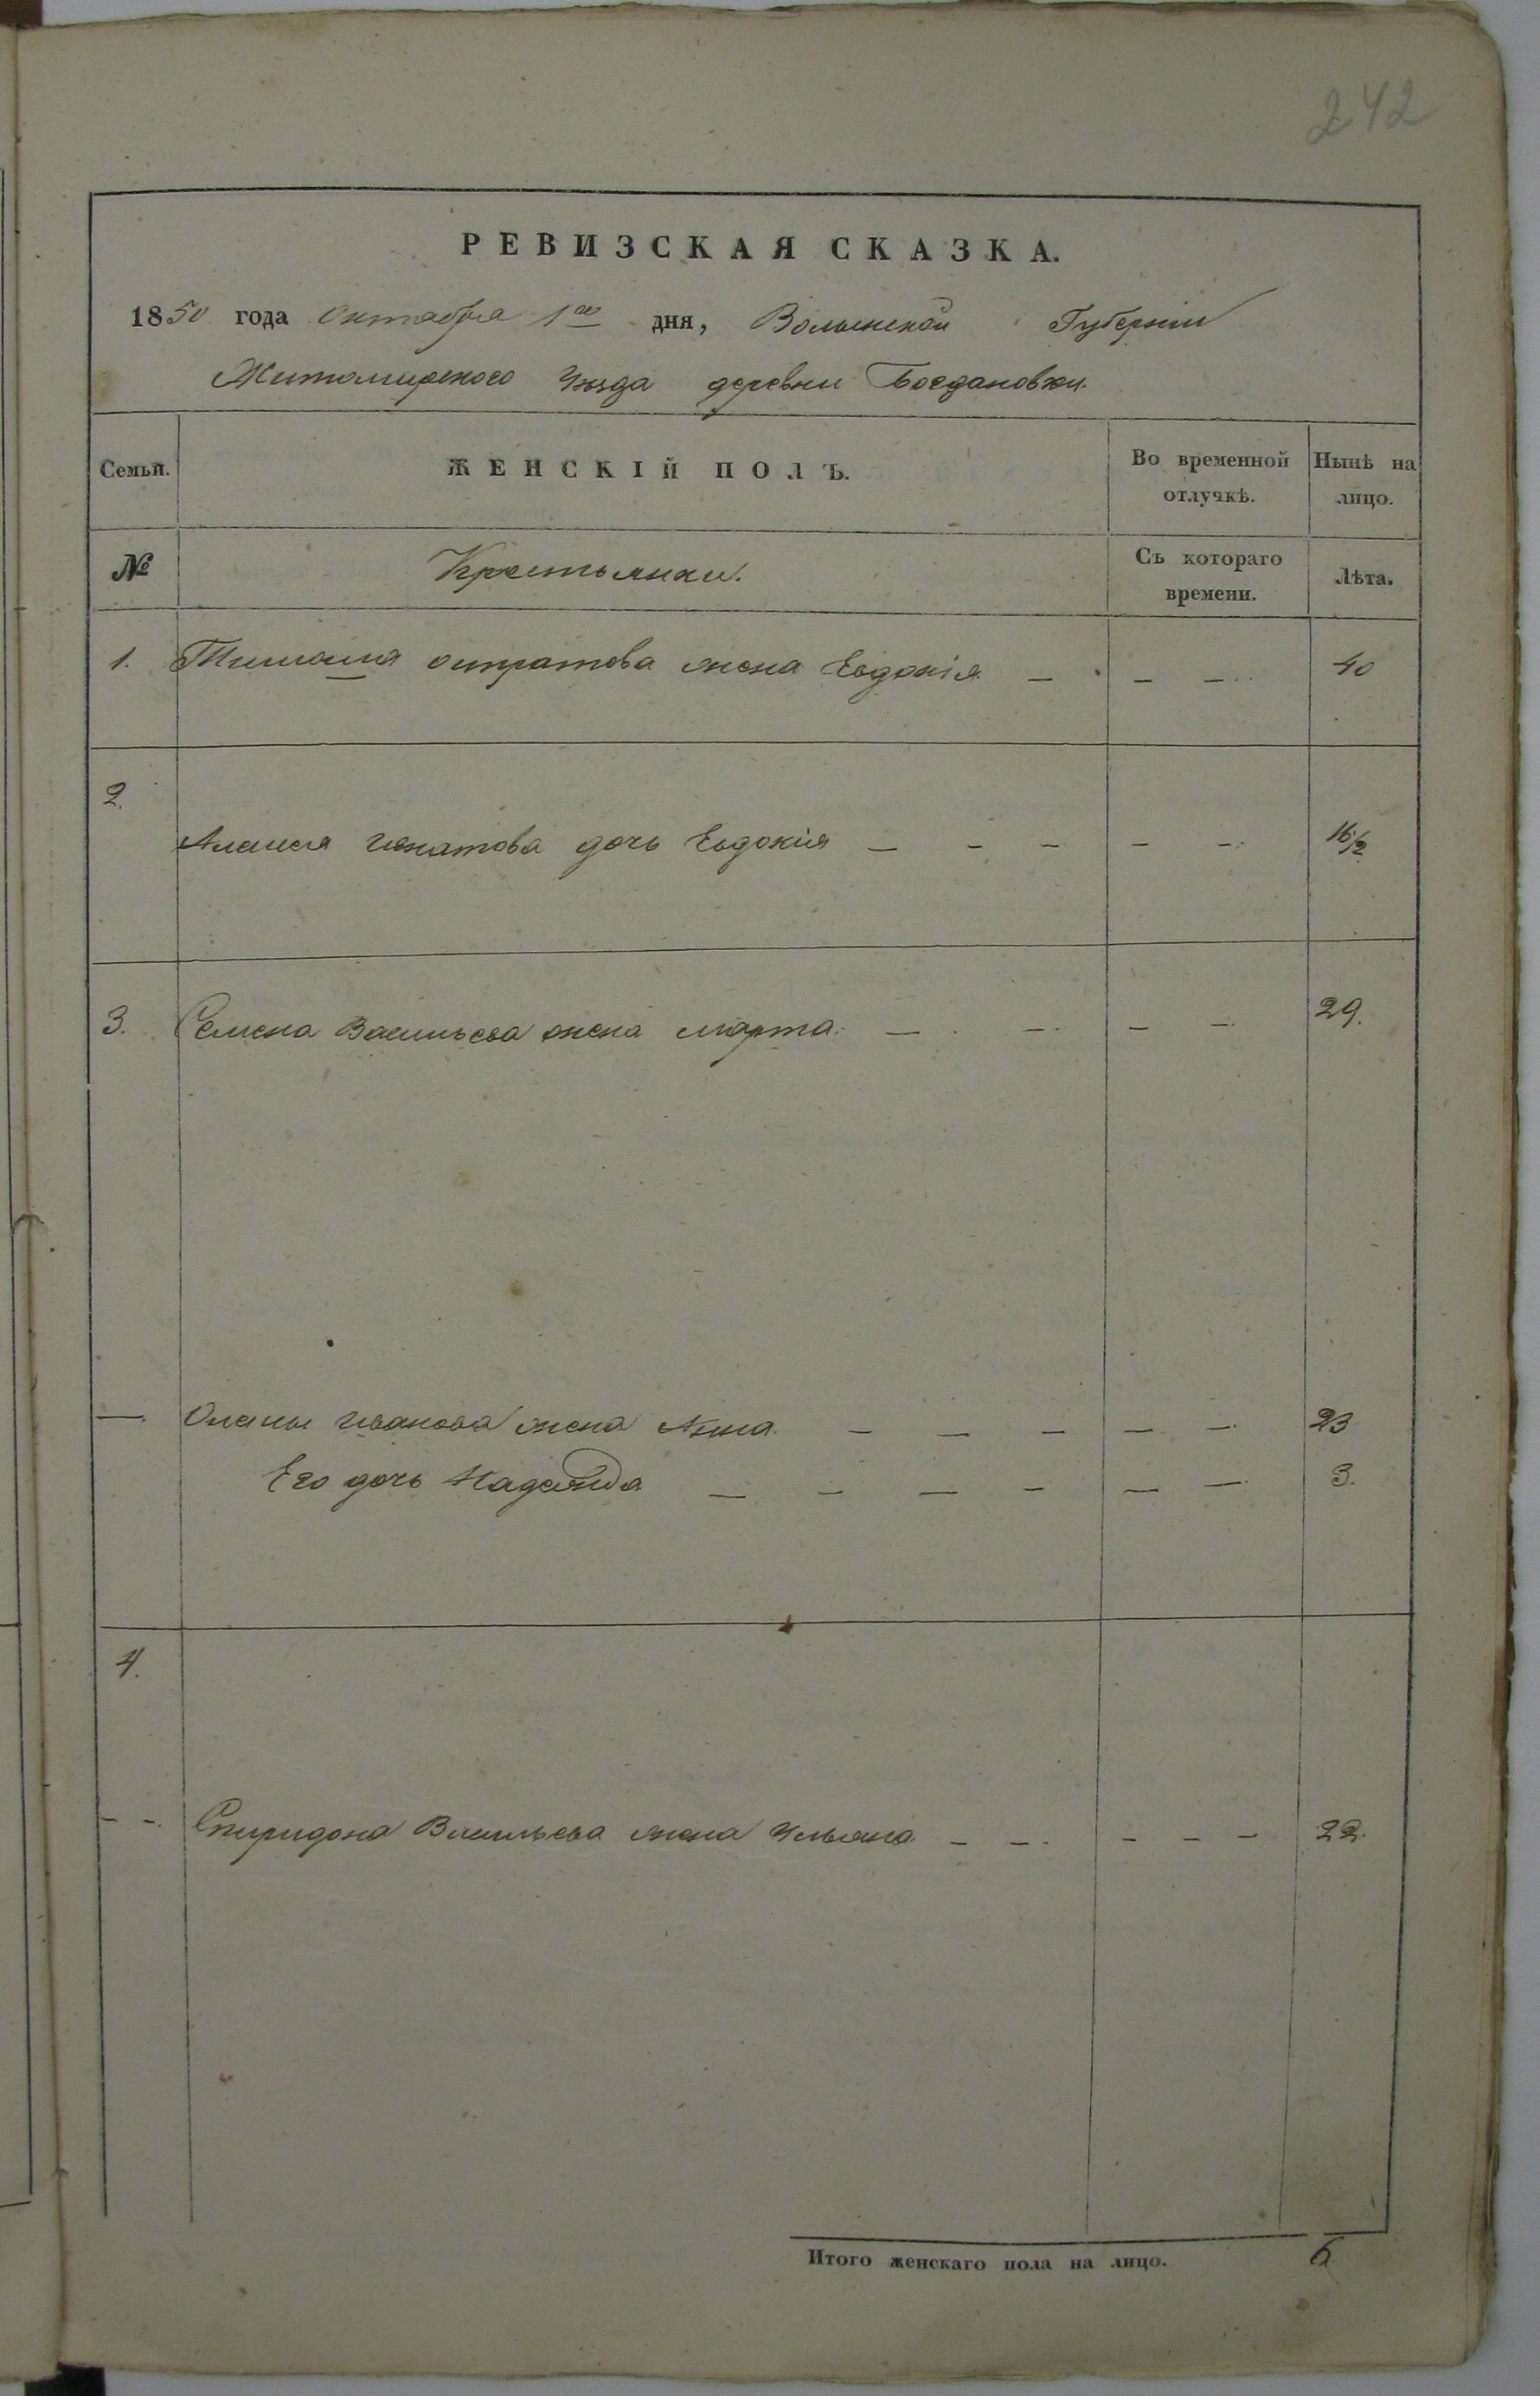 242
РЕВИЗСКАЯ СКАЗКА.
1850 года Октября 1го дня, Волынской Губерніи
Житомирского Уезда деревни Богдановки.
Семьи. ЖЕНСКІЙ ПОЛЪ. Во временной отлучкѣ. Нынѣ на лицо.
№ Крестьянки. Съ котораго времени. Лѣта.
1. жена Евдокія — — — 40
2.
Игнатова дочь Евдокія — — — — — 16/2
3. Семена Васильева жена марта — — — — 29.
— Иванова жена Анна — — — — — 23
Его дочь Надежда — — — — — — 3.
4.
— — Спиридона Васильева жена Ульяна — — — — — 22.
Итого женскаго пола на лицо. 6